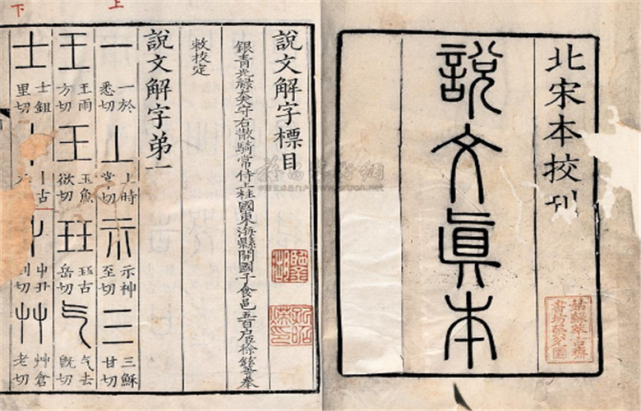 北宋本校刊
說文眞本
說文解字標目
銀青光祿大夫守右散騎常侍上柱國東海縣開國子食邑五百戶臣徐鉉等奉
敕校定
說文解字弟一
上
一 一於悉切 丄 上時掌切 示 示神至切 三 三穌甘切
王 王雨方切 王 玉魚欲切 玨 玨古岳切 气 气去既切
下
士 士鉏里切 丨 丨古切 屮 屮丑列切 艸 艸倉老切